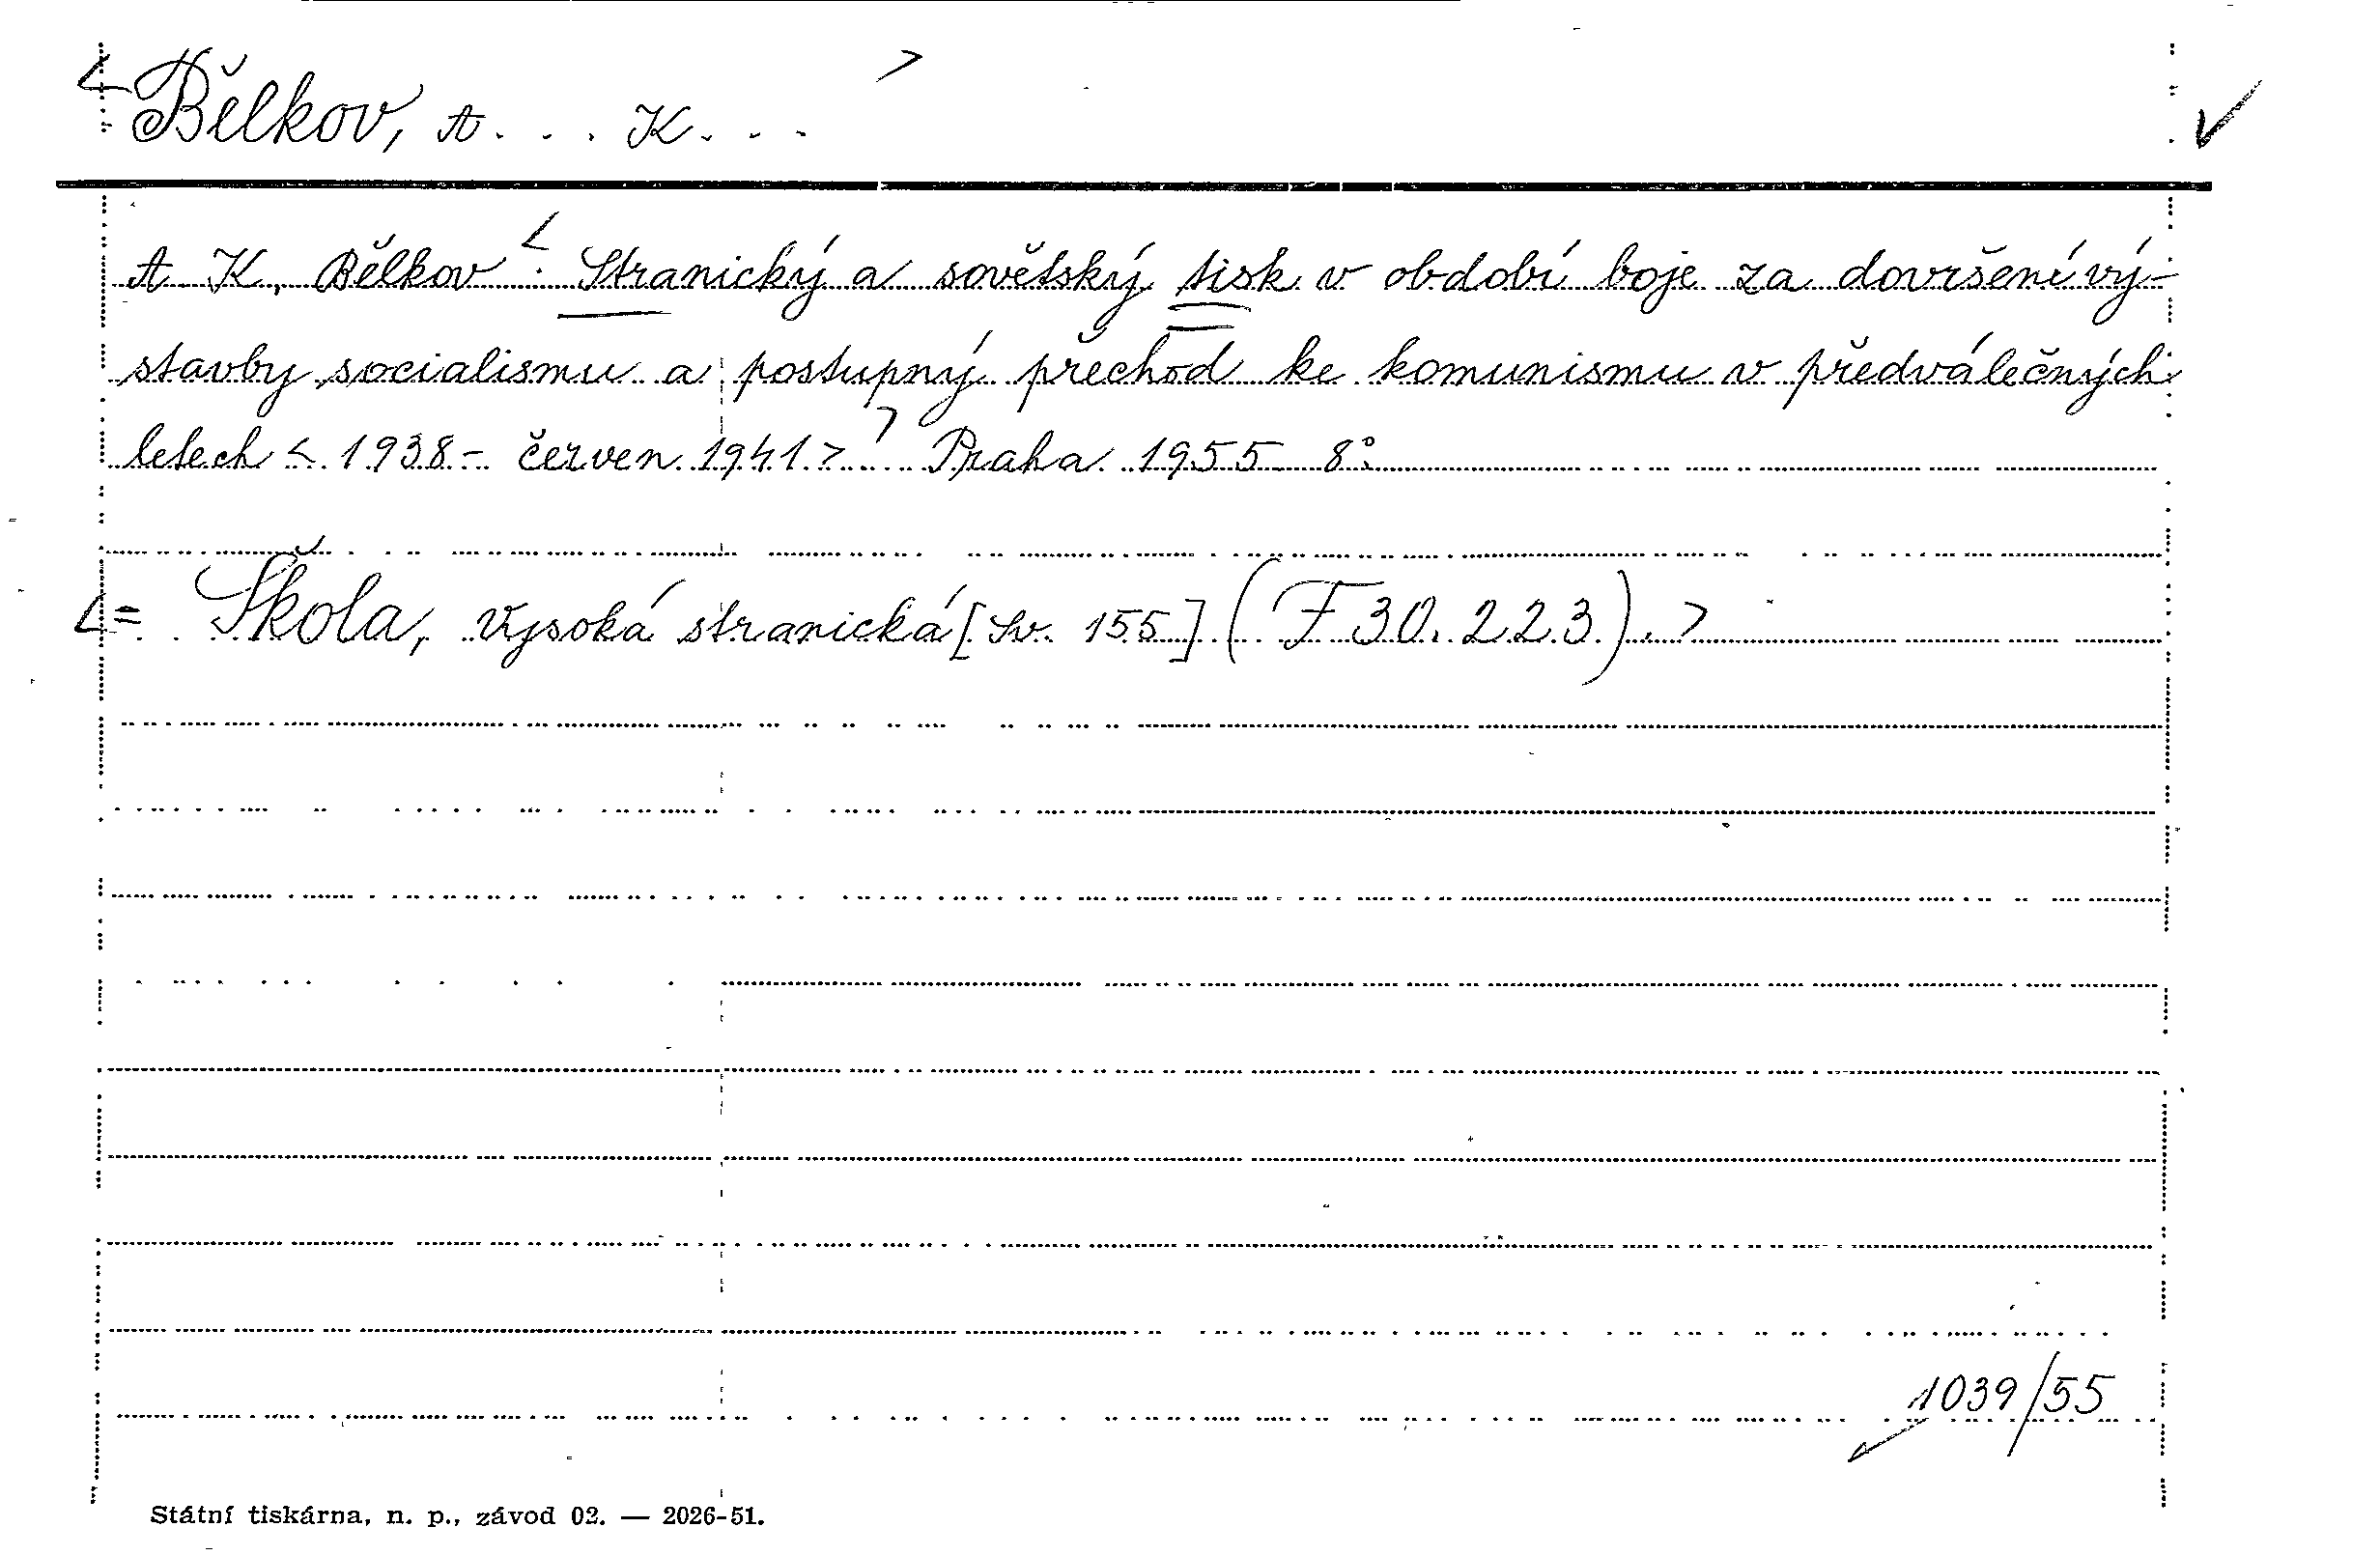 < Bělkov, A... K... > ✓
A. K. Bělkov < : Stranický a sovětský tisk v období boje za dovršení vý-
stavby socialismu a postupný přechod ke komunismu v předválečných
letech < 1938 - červen 1941 > > Praha 1955 8°
< = Škola, Vysoká stranická [Sv. 155] (F 30.223). >
1039/55
Státní tiskárna, n. p., závod 02. — 2026-51.